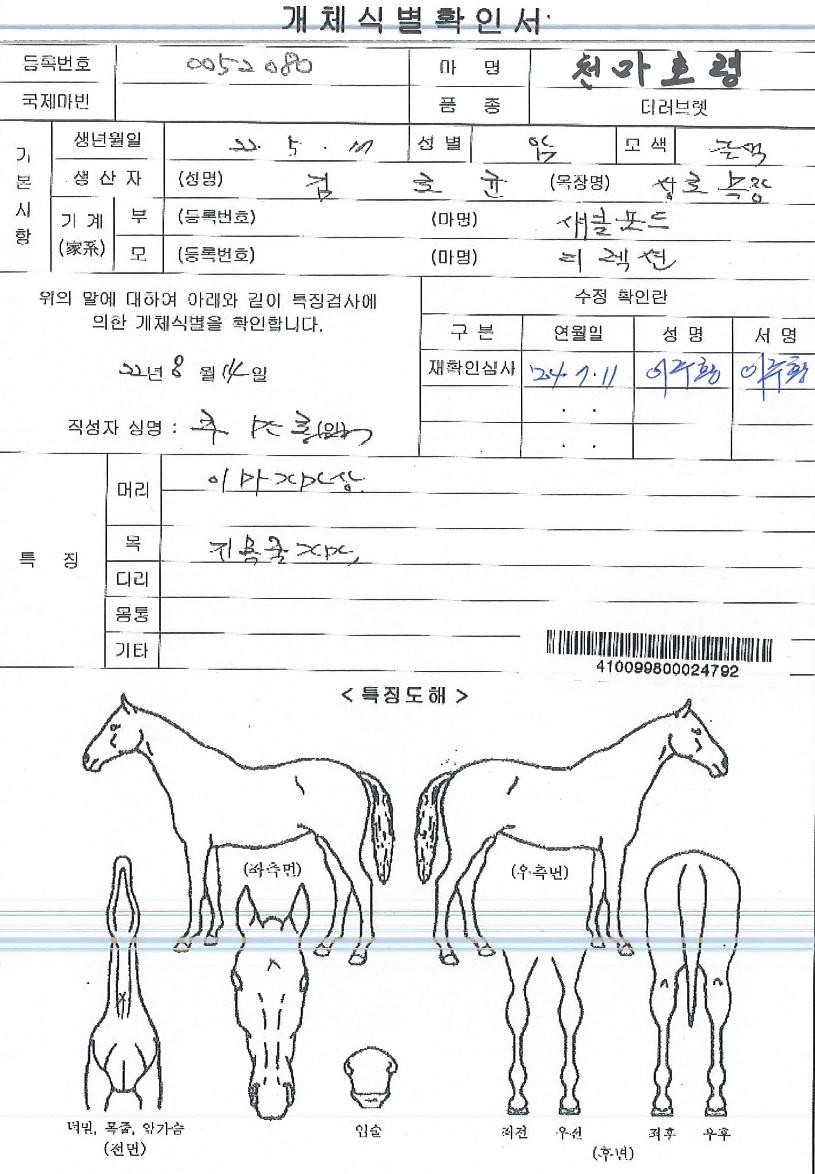 개체식별확인서
등록번호 0052080 마 명 천마호령
국제마번 품 종 더러브렛
기본사항
생년월일 22. 5. 성별 암 모색
생산자 (성명) 김 호 균 (목장명) 상호목장
기계 (家系) 부 (등록번호) (마명) 새클포드
모 (등록번호) (마명) 티렉션
위의 말에 대하여 아래와 같이 특징검사에
의한 개체식별을 확인합니다.
22년 8월 14일
작성자 성명 :
수정 확인란
구분 연월일 성명 서명
재확인심사 '24.7.11
특징
머리 이마
목
다리
몸통
기타
410099800024792
< 특징도해 >
(좌측면) (우측면)
턱밑, 목줄, 앞가슴 입술 좌전 우전 좌후 우후
(전면) (후면)